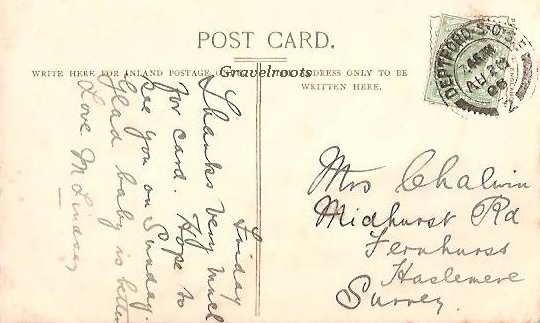 POST CARD.
WRITE HERE FOR INLAND POSTAGE
ADDRESS ONLY TO BE
WRITTEN HERE.
Gravelroots
DEPTFORD.S.O.
AU 26
2
Friday
Thanks very much
for card. Hope to
see you on Sunday.
Glad baby is better
Love M Lindsay
Mrs Chalwin
Midhurst Rd
Fernhurst
Haslemere
Surrey.